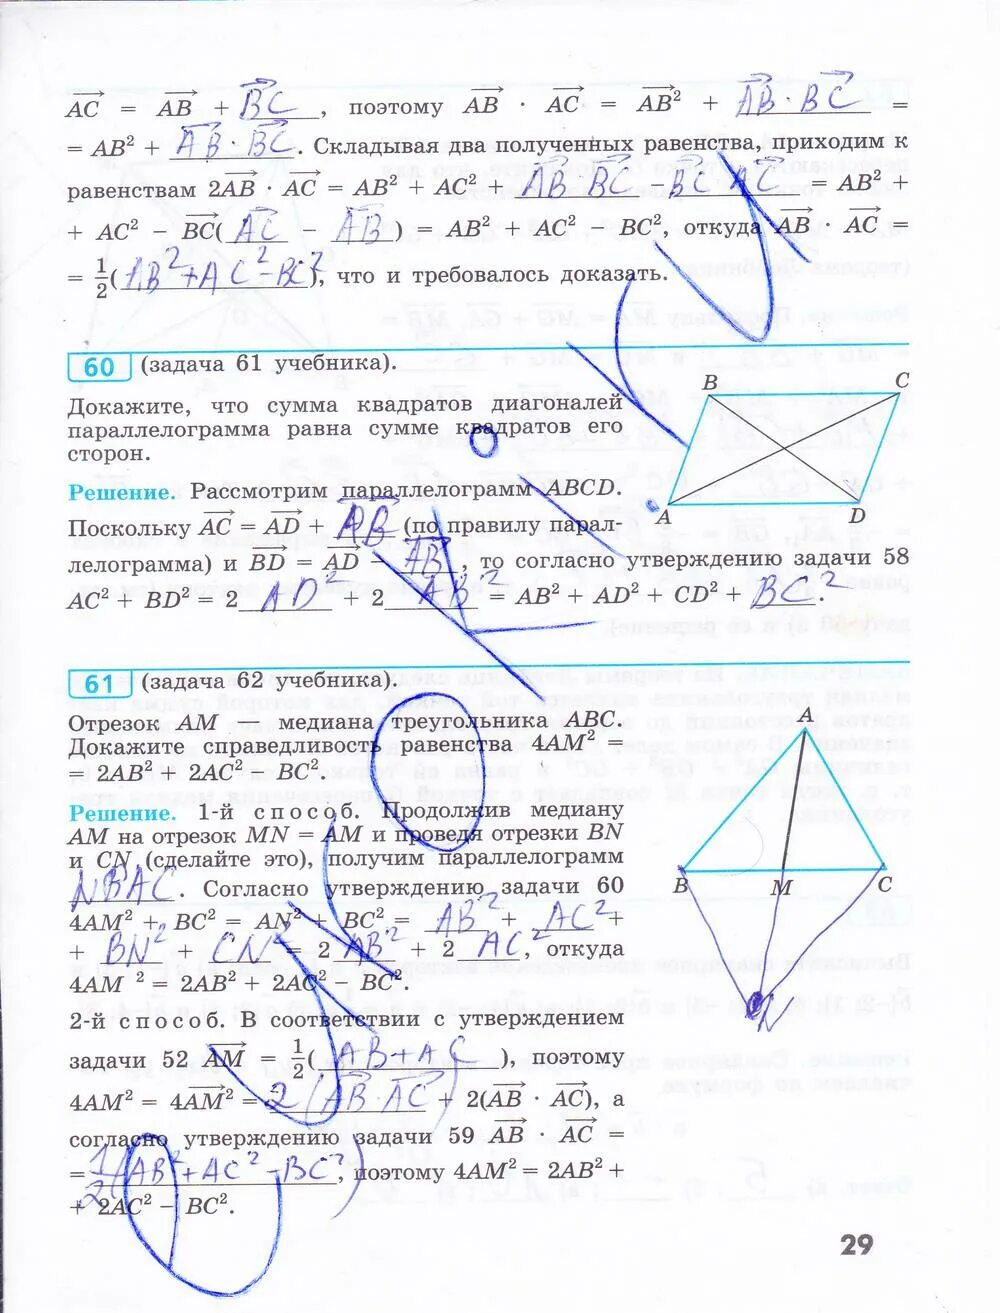 AC = AB + BC, поэтому AB · AC = AB² + AB · BC =
= AB² + AB · BC. Складывая два полученных равенства, приходим к
равенствам 2AB · AC = AB² + AC² + AB · BC BC AC = AB² +
+ AC² − BC(AC − AB) = AB² + AC² − BC², откуда AB · AC =
= 1/2(AB² + AC² − BC²), что и требовалось доказать.
60 (задача 61 учебника).
Докажите, что сумма квадратов диагоналей
параллелограмма равна сумме квадратов его
сторон.
B C
A D
Решение. Рассмотрим параллелограмм ABCD.
Поскольку AC = AD + AB (по правилу парал-
лелограмма) и BD = AD − AB, то согласно утверждению задачи 58
AC² + BD² = 2 AD² + 2 AB² = AB² + AD² + CD² + BC².
61 (задача 62 учебника).
Отрезок AM — медиана треугольника ABC.
Докажите справедливость равенства 4AM² =
= 2AB² + 2AC² − BC².
A
B M C
N
Решение. 1-й способ. Продолжив медиану
AM на отрезок MN = AM и проведя отрезки BN
и CN (сделайте это), получим параллелограмм
NBAC. Согласно утверждению задачи 60
4AM² + BC² = AN² + BC² = AB² + AC² +
+ BN² + CN² = 2 AB² + 2 AC², откуда
4AM² = 2AB² + 2AC² − BC².
2-й способ. В соответствии с утверждением
задачи 52 AM = 1/2(AB + AC), поэтому
4AM² = 4AM² = 2(AB · AC) + 2(AB · AC), а
согласно утверждению задачи 59 AB · AC =
= 1/2(AB² + AC² − BC²), поэтому 4AM² = 2AB² +
+ 2AC² − BC².
29